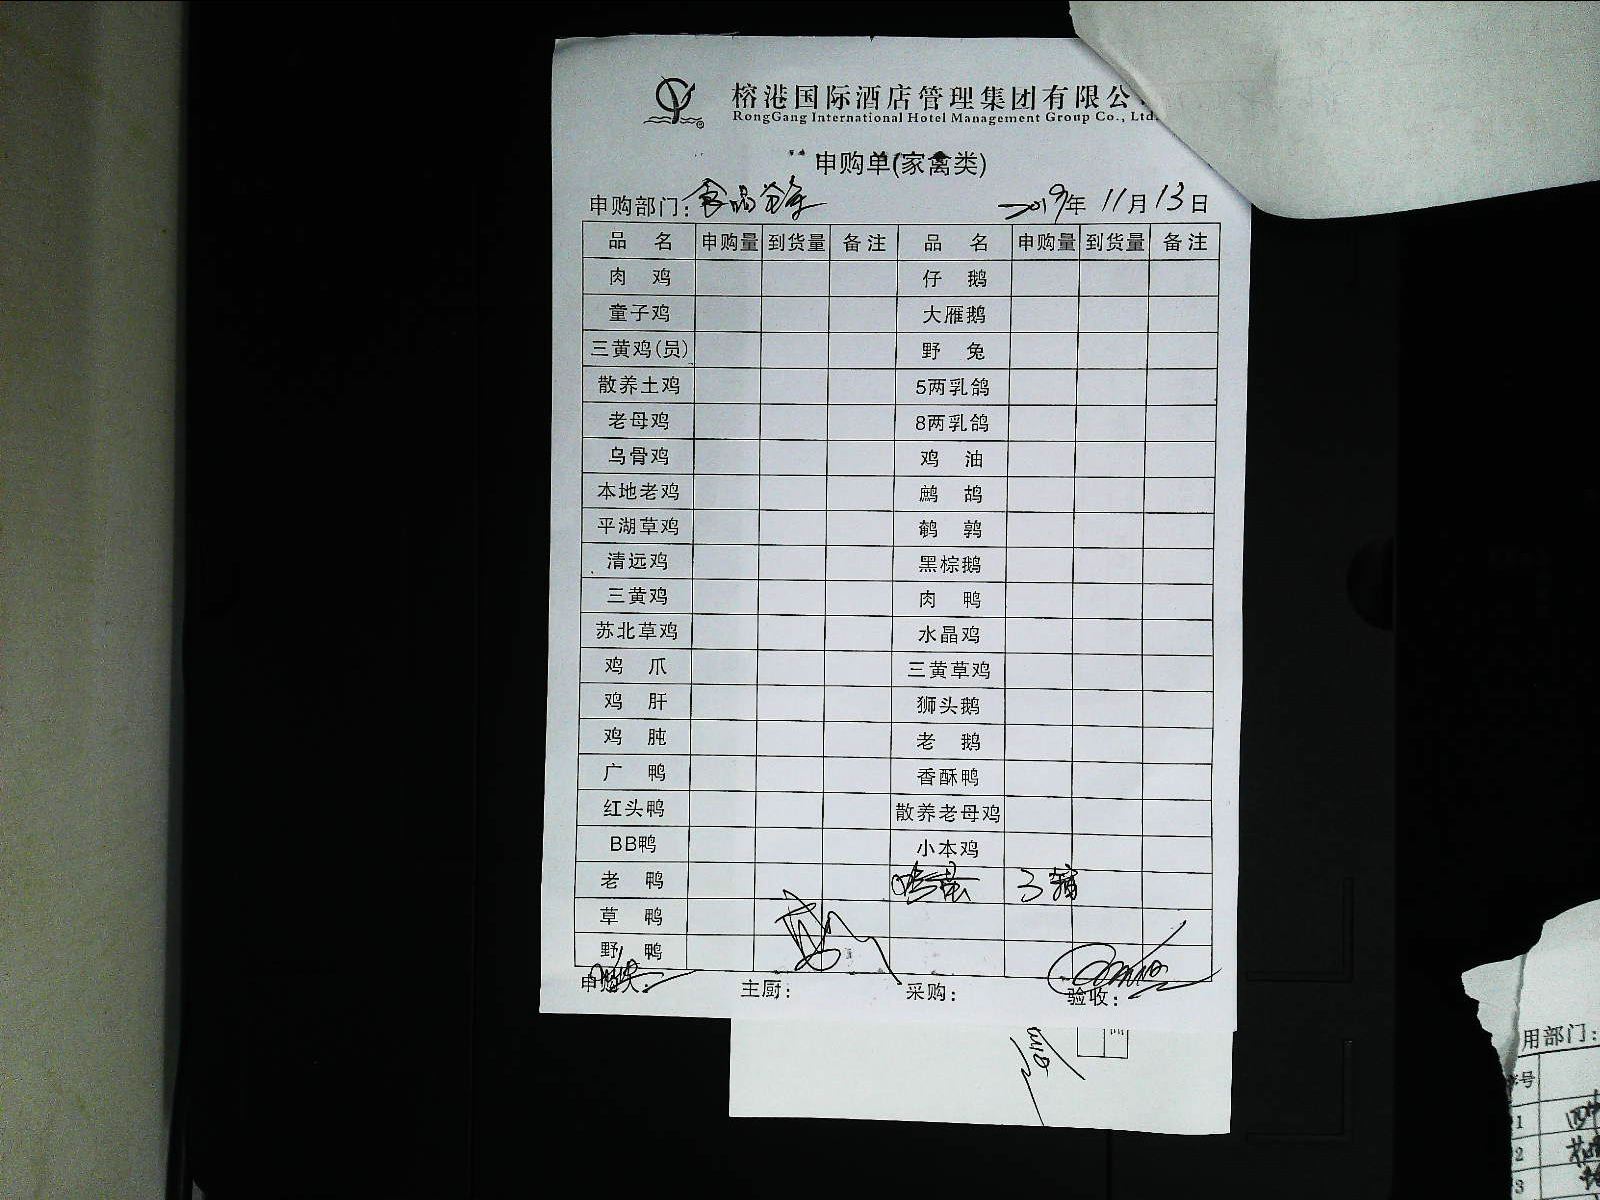 榕港国际酒店管理集团有限公
RongGang International Hotel Management Group Co., Ltd.
申购单(家禽类)
申购部门: 食品 2019年 11月 13日
品 名 申购量 到货量 备注 品 名 申购量 到货量 备注
肉 鸡 仔 鹅
童子鸡 大雁鹅
三黄鸡(员) 野 兔
散养土鸡 5两乳鸽
老母鸡 8两乳鸽
乌骨鸡 鸡 油
本地老鸡 鹧 鸪
平湖草鸡 鹌 鹑
清远鸡 黑棕鹅
三黄鸡 肉 鸭
苏北草鸡 水晶鸡
鸡 爪 三黄草鸡
鸡 肝 狮头鹅
鸡 肫 老 鹅
广 鸭 香酥鸭
红头鸭 散养老母鸡
BB鸭 小本鸡
老 鸭
草 鸭
野 鸭
申购人: 主厨: 采购: 验收:
用部门:
号
1
2
3